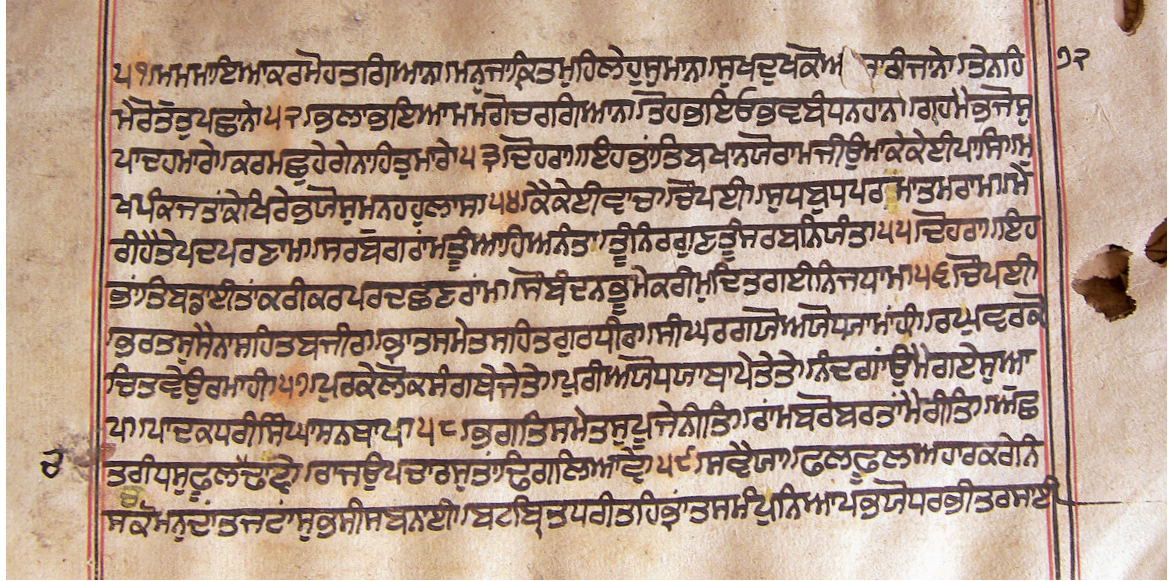 ੫੧।ਮਮਮਾਇਆਕਰਮੋਹਤਗਿਆਨਾ।ਮਨੁਜਾਕ੍ਰਿਤਮੁਹਿਲੇਹੁਸੁਮਾਨਾ।ਸੁਖਦੁਖਕੋਅ ਰੀਜਾਨੋ।ਤੇਨਹਿ ੭੨
ਮੇਰੋਤਤੁਪਛਾਨੋ੫੨।ਭੁਲਾਭਇਆਮਮਗੋਚਰਗਿਆਨਾ।ਤੋਹਭਇਓਭਵਬੰਧਨਹਾਨਾ।ਗ੍ਰਹਮੈਭਜੋਸੁ
ਪਾਦਹਮਾਰੇ।ਕਰਮਛੁਹੇਗੇਨਾਹਿਤੁਮਾਰੇ੫੩।ਦੋਹਰਾ।ਇਹਭਾਂਤਿਬਖਾਨਯੋਰਾਮਜੀਉਮਾਕੇਕੇਈਪਾਸਿ।ਮੁ
ਖਪੰਕਜਤਾਂਕੇਖਿਰੇਭਯੋਸੁਮਨਹਹੁਲਾਸਾ੫੪।ਕੈਕੇਈਵਾਚਾ।ਚੌਪਈ।ਸੁਧਬੁਧਪਰਮਾਤਮਰਾਮਾ।ਮੇ
ਰੀਹੈਤੇਪਦਪਰਣਾਮਾ।ਸਰਬੰਗਰਾਂਮਤੂੰਆਹਿਅਨੰਤਾ।ਤੂੰਨਿਰਗੁਣਤੂੰਸਰਬਨਿਯੰਤਾ੫੫।ਦੋਹਰਾ।ਇਹ
ਭਾਂਤਿਬਡਾਈਤਾਂਕਰੀਕਰਪਰਦਛਣਰਾਂਮਾ।ਜੋਬੰਦਨਭੂਮੇਕਰੀਮੁਦਿਤਗਈਨਿਜਧਾਮਾ੫੬।ਚੌਪਈ
।ਭਰਤਸੁਸੈਨਾਸਹਿਤਬਜੀਰਾ।ਭ੍ਰਾਤਸਮੇਤਸਹਿਤਗੁਰਧੀਰਾ।ਸੀਘਰਗਯੋਅਯੋਧਯਾਮਾਂਹੀ।ਰਘੁਵਰਕੋ
ਚਿਤਵੇਉਰਮਾਹੀ੫੭।ਪੁਰਕੇਲੋਕਸੰਗਥੇਜੇਤੇ।ਪੁਰੀਅਯੋਧਯਾਥਾਪੇਤੇਤੇ।ਨੰਦਗਾਂਉਮੈਗਏਸੁਆ
ਪਾ।ਪਾਦਕਧਰੀਸਿੰਘਾਸਨਥਾਪਾ੫੮।ਭਗਤਿਸਮੇਤਸੁਪੂਜੇਨੀਤਿ।ਰਾਂਮਬਰੋਬਰਤਾਂਮੈਰੀਤਿ।ਅੱਛ
ਤਗੰਧਸੁਫੂਲਚੜਾਵੇ।ਰਾਜਉਪਚਾਰਸੁਤਾਂਢਿਗਲਿਆਂਵੇ।੫੯।ਸਵੈਯਾ।ਫਲਫੂਲਅਹਾਰਕਰੇਨਿ
ਸਕੋਮਨੁਦਾਂਤਜਟਾਂਸੁਭਸੀਸਬਨਾਈ।ਬਟਬ੍ਰਿਤਧਰੀਤਹਿਭ੍ਰਾਂਤਸਸੰਘੁਨਿਆਂਪਭਯੋਧਰਭੀਤਰਸਾਈ